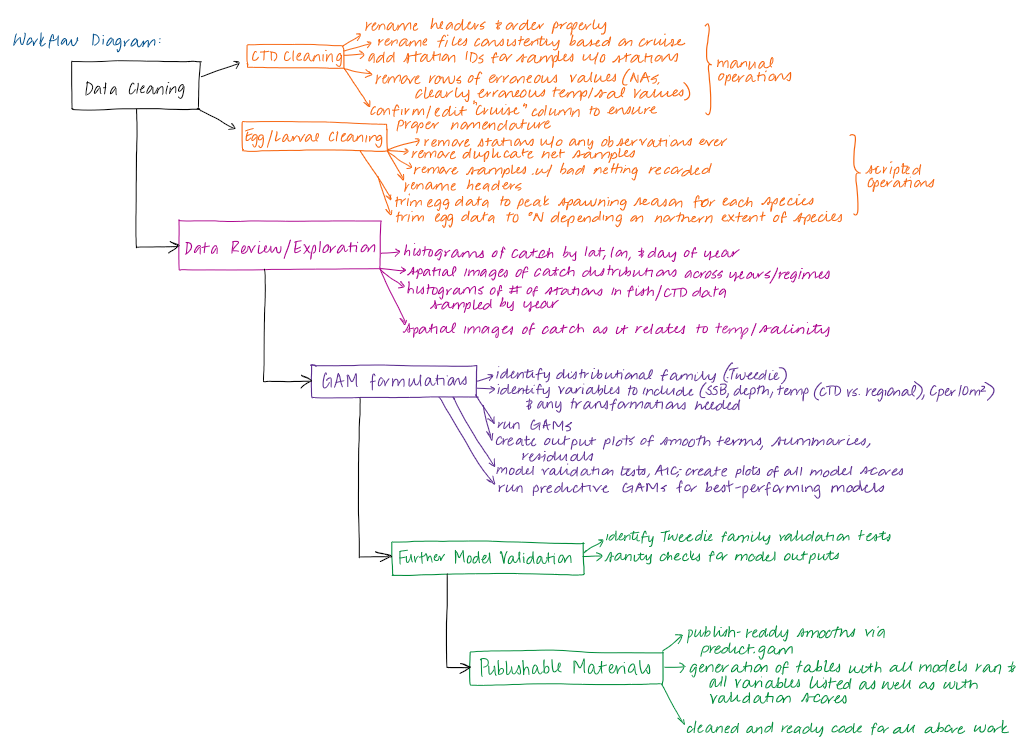 Workflow Diagram:
Data Cleaning
CTD Cleaning
rename headers & order properly
rename files consistently based on cruise
add station IDs for samples w/o stations
remove rows of erroneous values (NAs,
clearly erroneous temp/sal values)
confirm/edit "Cruise" column to ensure
proper nomenclature
manual
operations
Egg/Larvae Cleaning
remove stations w/o any observations ever
remove duplicate net samples
remove samples w/ bad netting recorded
rename headers
trim egg data to peak spawning season for each species
trim egg data to °N depending on northern extent of species
scripted
operations
Data Review/Exploration
histograms of catch by lat, lon, & day of year
spatial images of catch distributions across years/regimes
histograms of # of stations in fish/CTD data
sampled by year
spatial images of catch as it relates to temp/salinity
GAM formulations
identify distributional family (Tweedie)
identify variables to include (SSB, depth, temp (CTD vs. regional), Cper10m²)
& any transformations needed
run GAMs
create output plots of smooth terms, summaries,
residuals
model validation tests, AIC; create plots of all model scores
run predictive GAMs for best-performing models
Further Model Validation
identify Tweedie family validation tests
sanity checks for model outputs
Publishable Materials
publish-ready smooths via
predict.gam
generation of tables with all models ran &
all variables listed as well as with
validation scores
cleaned and ready code for all above work